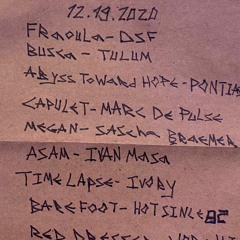 12.19.2020
FRAOULA- DSF
BUSCA - TULUM
ABYSS TOWARD HOPE - PONTIA
CAPULET- MARC DE PULSE
MEGAN- SASCHA BRAEMER
ASAM - IVAN MASA
TIME LAPSE- IVORY
BAREFOOT- HOT SINCE 82
RED